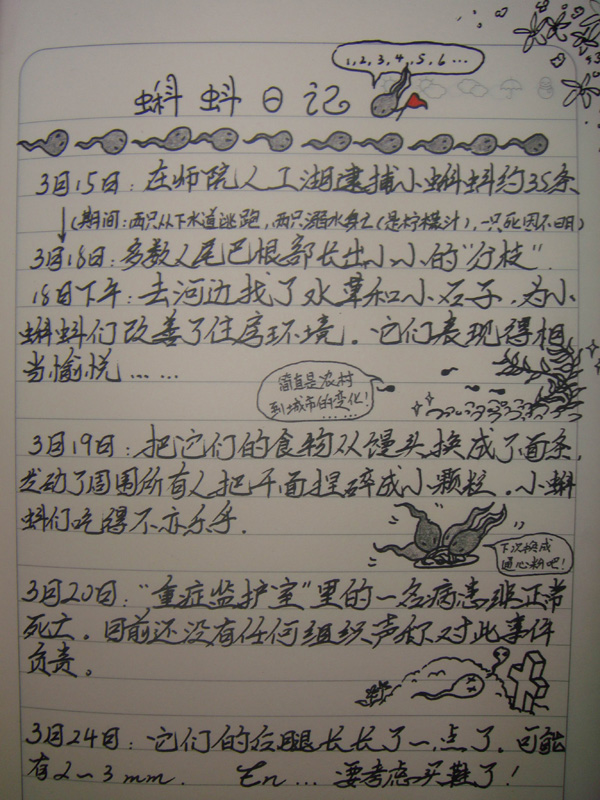 1, 2, 3, 4, 5, 6 ...
蝌蚪日记
3月15日：在师院人工湖逮捕小蝌蚪约35条
(期间：两只从下水道逃跑，两只溺水身亡(是柠檬汁)，一只死因不明)
3月18日：多数、尾巴根部长出小小的“分枝”.
18日下午：去河边找了水草和小石子，为小
蝌蚪们改善了住房环境。它们表现得相
当愉悦……
简直是农村
到城市的变化！
3月19日：把它们的食物从馒头换成了面条，
发动了周围所有人把干面捏碎成小颗粒。小蝌
蚪们吃得不亦乐乎.
下次换成
通心粉吧！
3月20日：“重症监护室”里的一名病患非正常
死亡。目前还没有任何组织声称对此事件
负责。
3月24日：它们的后腿长长了一点了，可能
有2~3mm. En... 要考虑买鞋了！